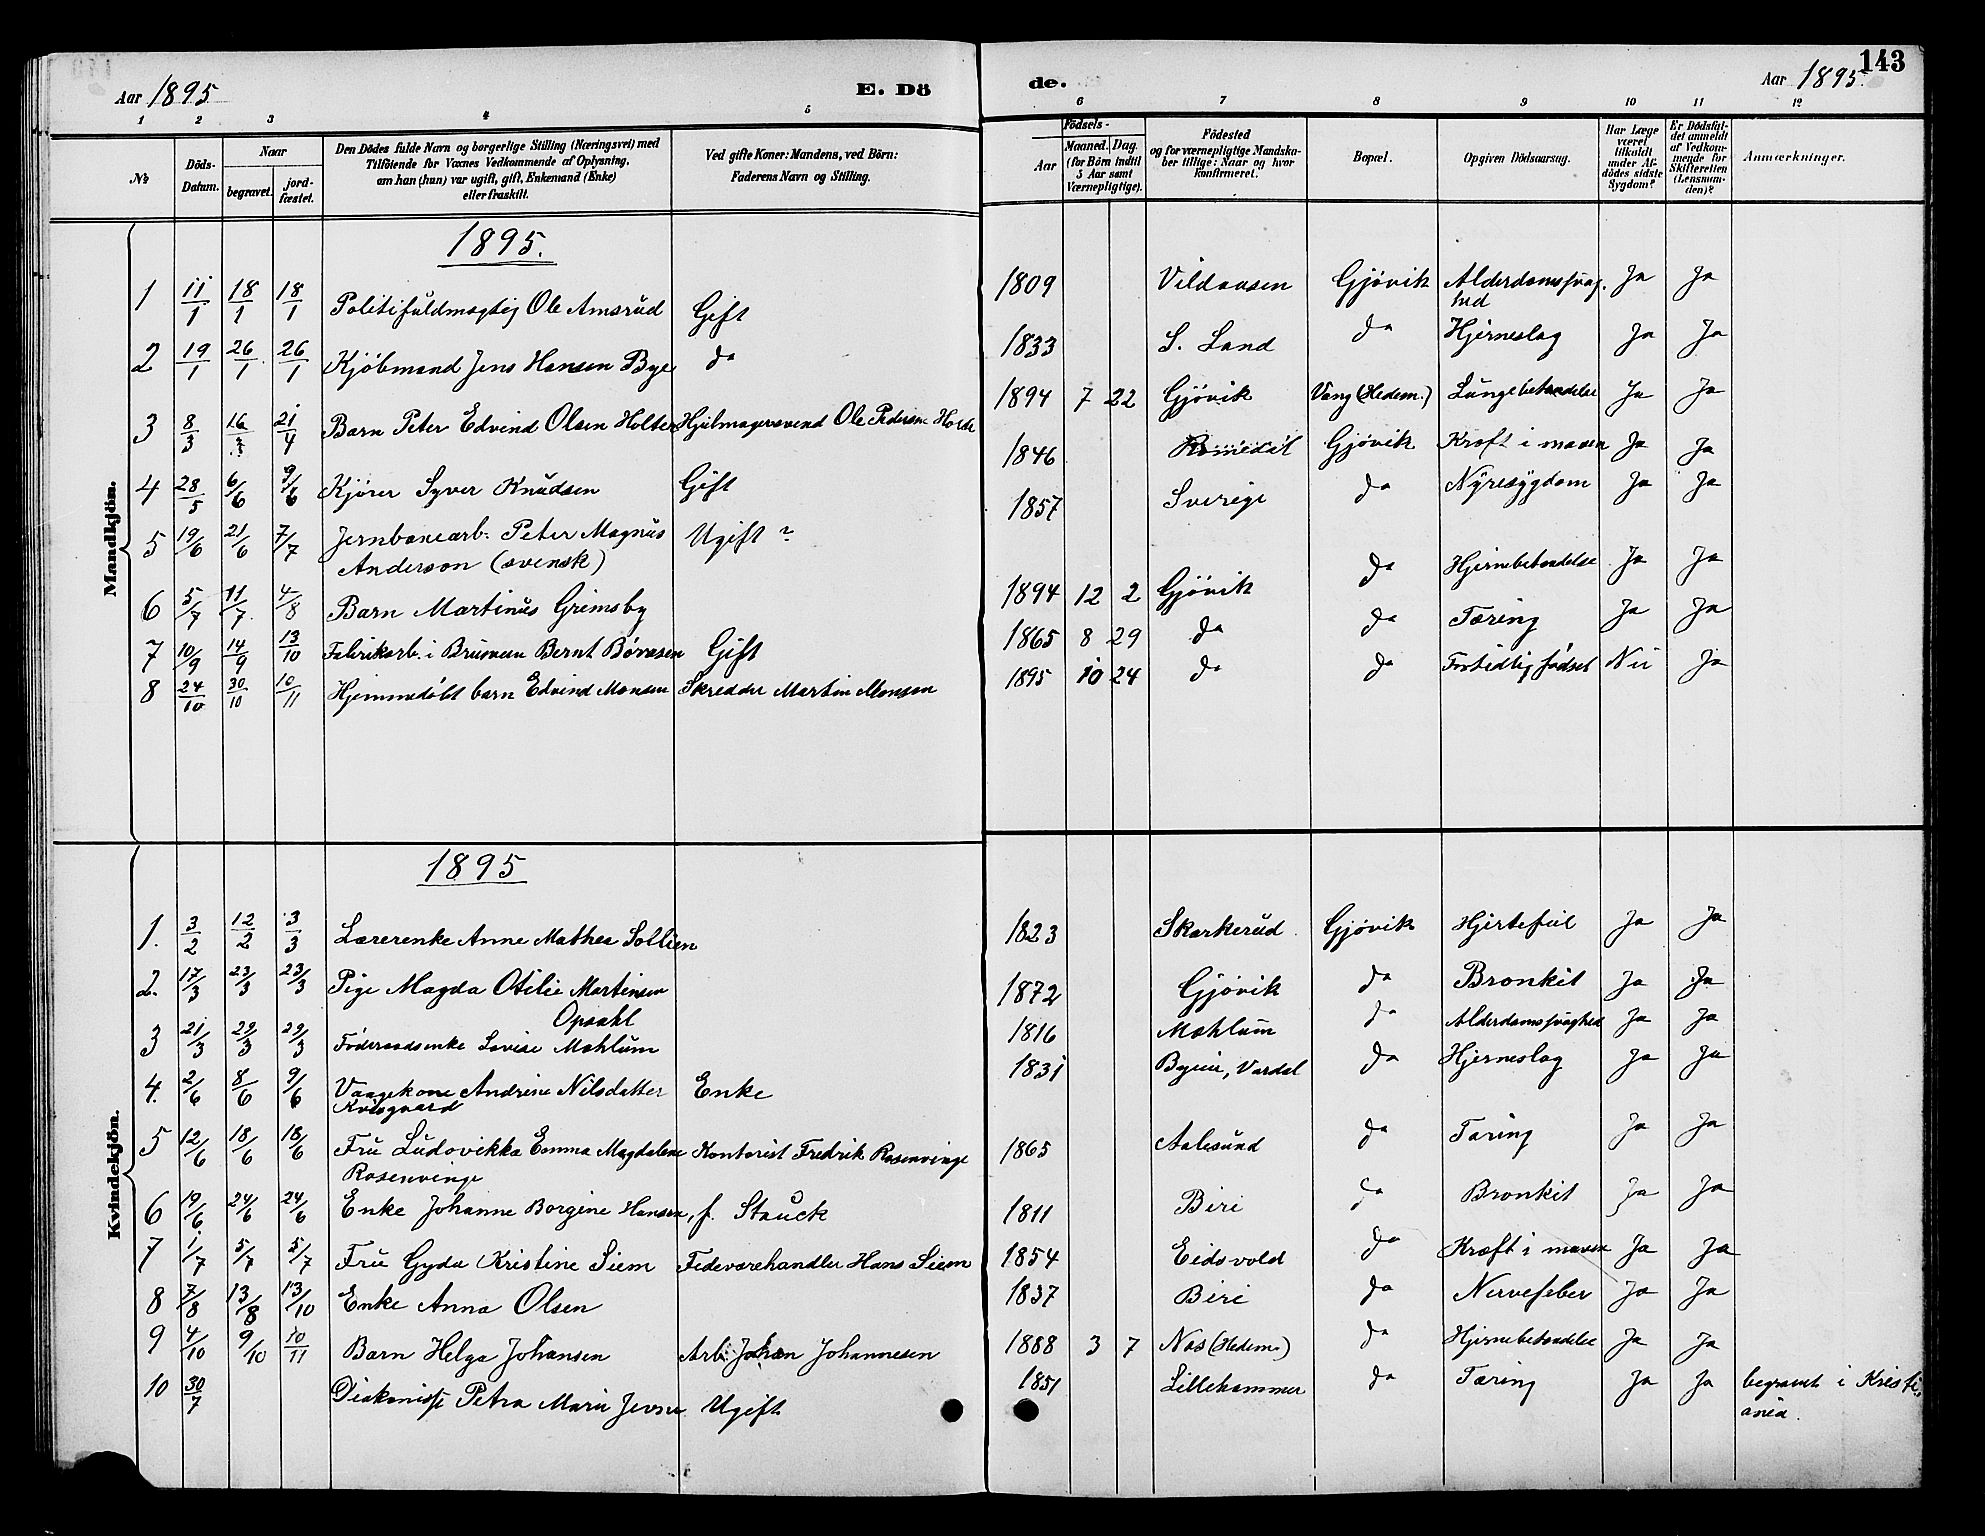 143
Aar 1895
E. Dö
de.
Aar 1895.
1 2 3 4 5
6 7 8 9 10 11 12
№
Döds-Datum.
Naar
begravet.
jord-fæstet.
Den Dödes fulde Navn og borgerlige Stilling (Næringsvei) med
Tilföiende for Voxnes Vedkommende af Oplysning,
om han (hun) var ugift, gift, Enkemand (Enke)
eller fraskilt.
Ved gifte Koner: Mandens, ved Börn:
Faderens Navn og Stilling.
Födsels-
Aar
Maaned. Dag.
(for Börn indtil
5 Aar samt
Værnepligtige).
Födested
og for værnepligtige Mandska-
ber tillige: Naar og hvor
konfirmeret.
Bopæl.
Opgiven Dödsaarsag.
Har Læge
været
tilkaldt
under Af-
dödes sidste
Sygdom?
Er Dödsfal-
det anmeldt
af Vedkom-
mende for
Skifteretten
(Lensman-
den)?
Anmærkninger.
Mandkjön.
1895.
1 11/1 18/1 18/1 Politifuldmægtig Ole Amsrud Gift 1809 Gjövik Alderdomssvag- Ja Ja
hed
2 19/1 26/1 26/1 Kjöbmand Jens Hansen Bye do 1833 S. Land do Hjerneslag Ja Ja
3 8/3 16/3 21/4 Barn Peter Edvind Olsen Holte Hjulmagersvend Ole Pedersen 1894 7 22 Gjövik Vang (Hedem.) Lungebetændelse Ja Ja
4 28/5 6/6 9/6 Kjörer Syver Knudsen Gift 1846 Romedal Gjövik Kræft i maven Ja Ja
5 19/6 21/6 7/7 Jernbanearb. Peter Magnus Ugift ? 1857 Sverige do Nyresygdom Ja Ja
Anderson (svensk)
6 5/7 11/7 4/8 Barn Martinus Grimsby 1894 12 2 Gjövik do Hjernebetændelse Ja Ja
7 10/9 14/9 13/10 Fabrikarb. i Brumun Bernt Gift 1865 8 29 do do Tæring Ja Ja
8 24/10 30/10 10/11 Hjemmedöbt barn Edvind Monsen Skredder Martin Monsen 1895 10 24 do do Fortidlig födsel Nei Ja
Kvindekjön.
1895
1. 3/2 12/2 3/3 Lærerenke Anne Mathea Sollien 1823 Skarkerud Gjövik Hjertefeil Ja Ja
2. 17/3 23/3 23/3 Pige Magda Otilie Martinsen 1872 Gjövik do Bronkit Ja Ja
Opsahl
3 21/3 29/3 29/3 Föderaadsenke Lovise Mæhlum 1816 Mæhlum do Alderdomssvaghed Ja Ja
4. 2/6 8/6 9/6 Vaagekone Andrine Nilsdatter Enke 1831 Vardal do Hjerneslag Ja Ja
Kvisgaard
5 12/6 18/6 18/6 Fru Ludovikka Emma Magdalene Kontorist Fredrik Rosenvinge 1865 Aalesund do Tæring Ja Ja
Rosenvinge
6 19/6 24/6 24/6 Enke Johanne Borgine Hansen, f. Stauck 1811 Biri do Bronkit Ja Ja
7 1/7 5/7 5/7 Fru Gyda Kristine Siem Fedevarehandler Hans Siem 1854 Eidsvold do Kræft i maven Ja Ja
8 7/8 13/8 13/10 Enke Anna Olsen 1837 Biri do Nervefeber Ja Ja
9 4/10 9/10 10/11 Barn Helga Johansen Arb. Johan Johannesen 1888 3 7 Næs (Hedem.) do Hjernebetændelse Ja Ja
10 30/7 Diakonisse Petra Marie Jensen Ugift 1851 Lillehammer do Tæring Ja Ja begravet i Kristi-
ania.